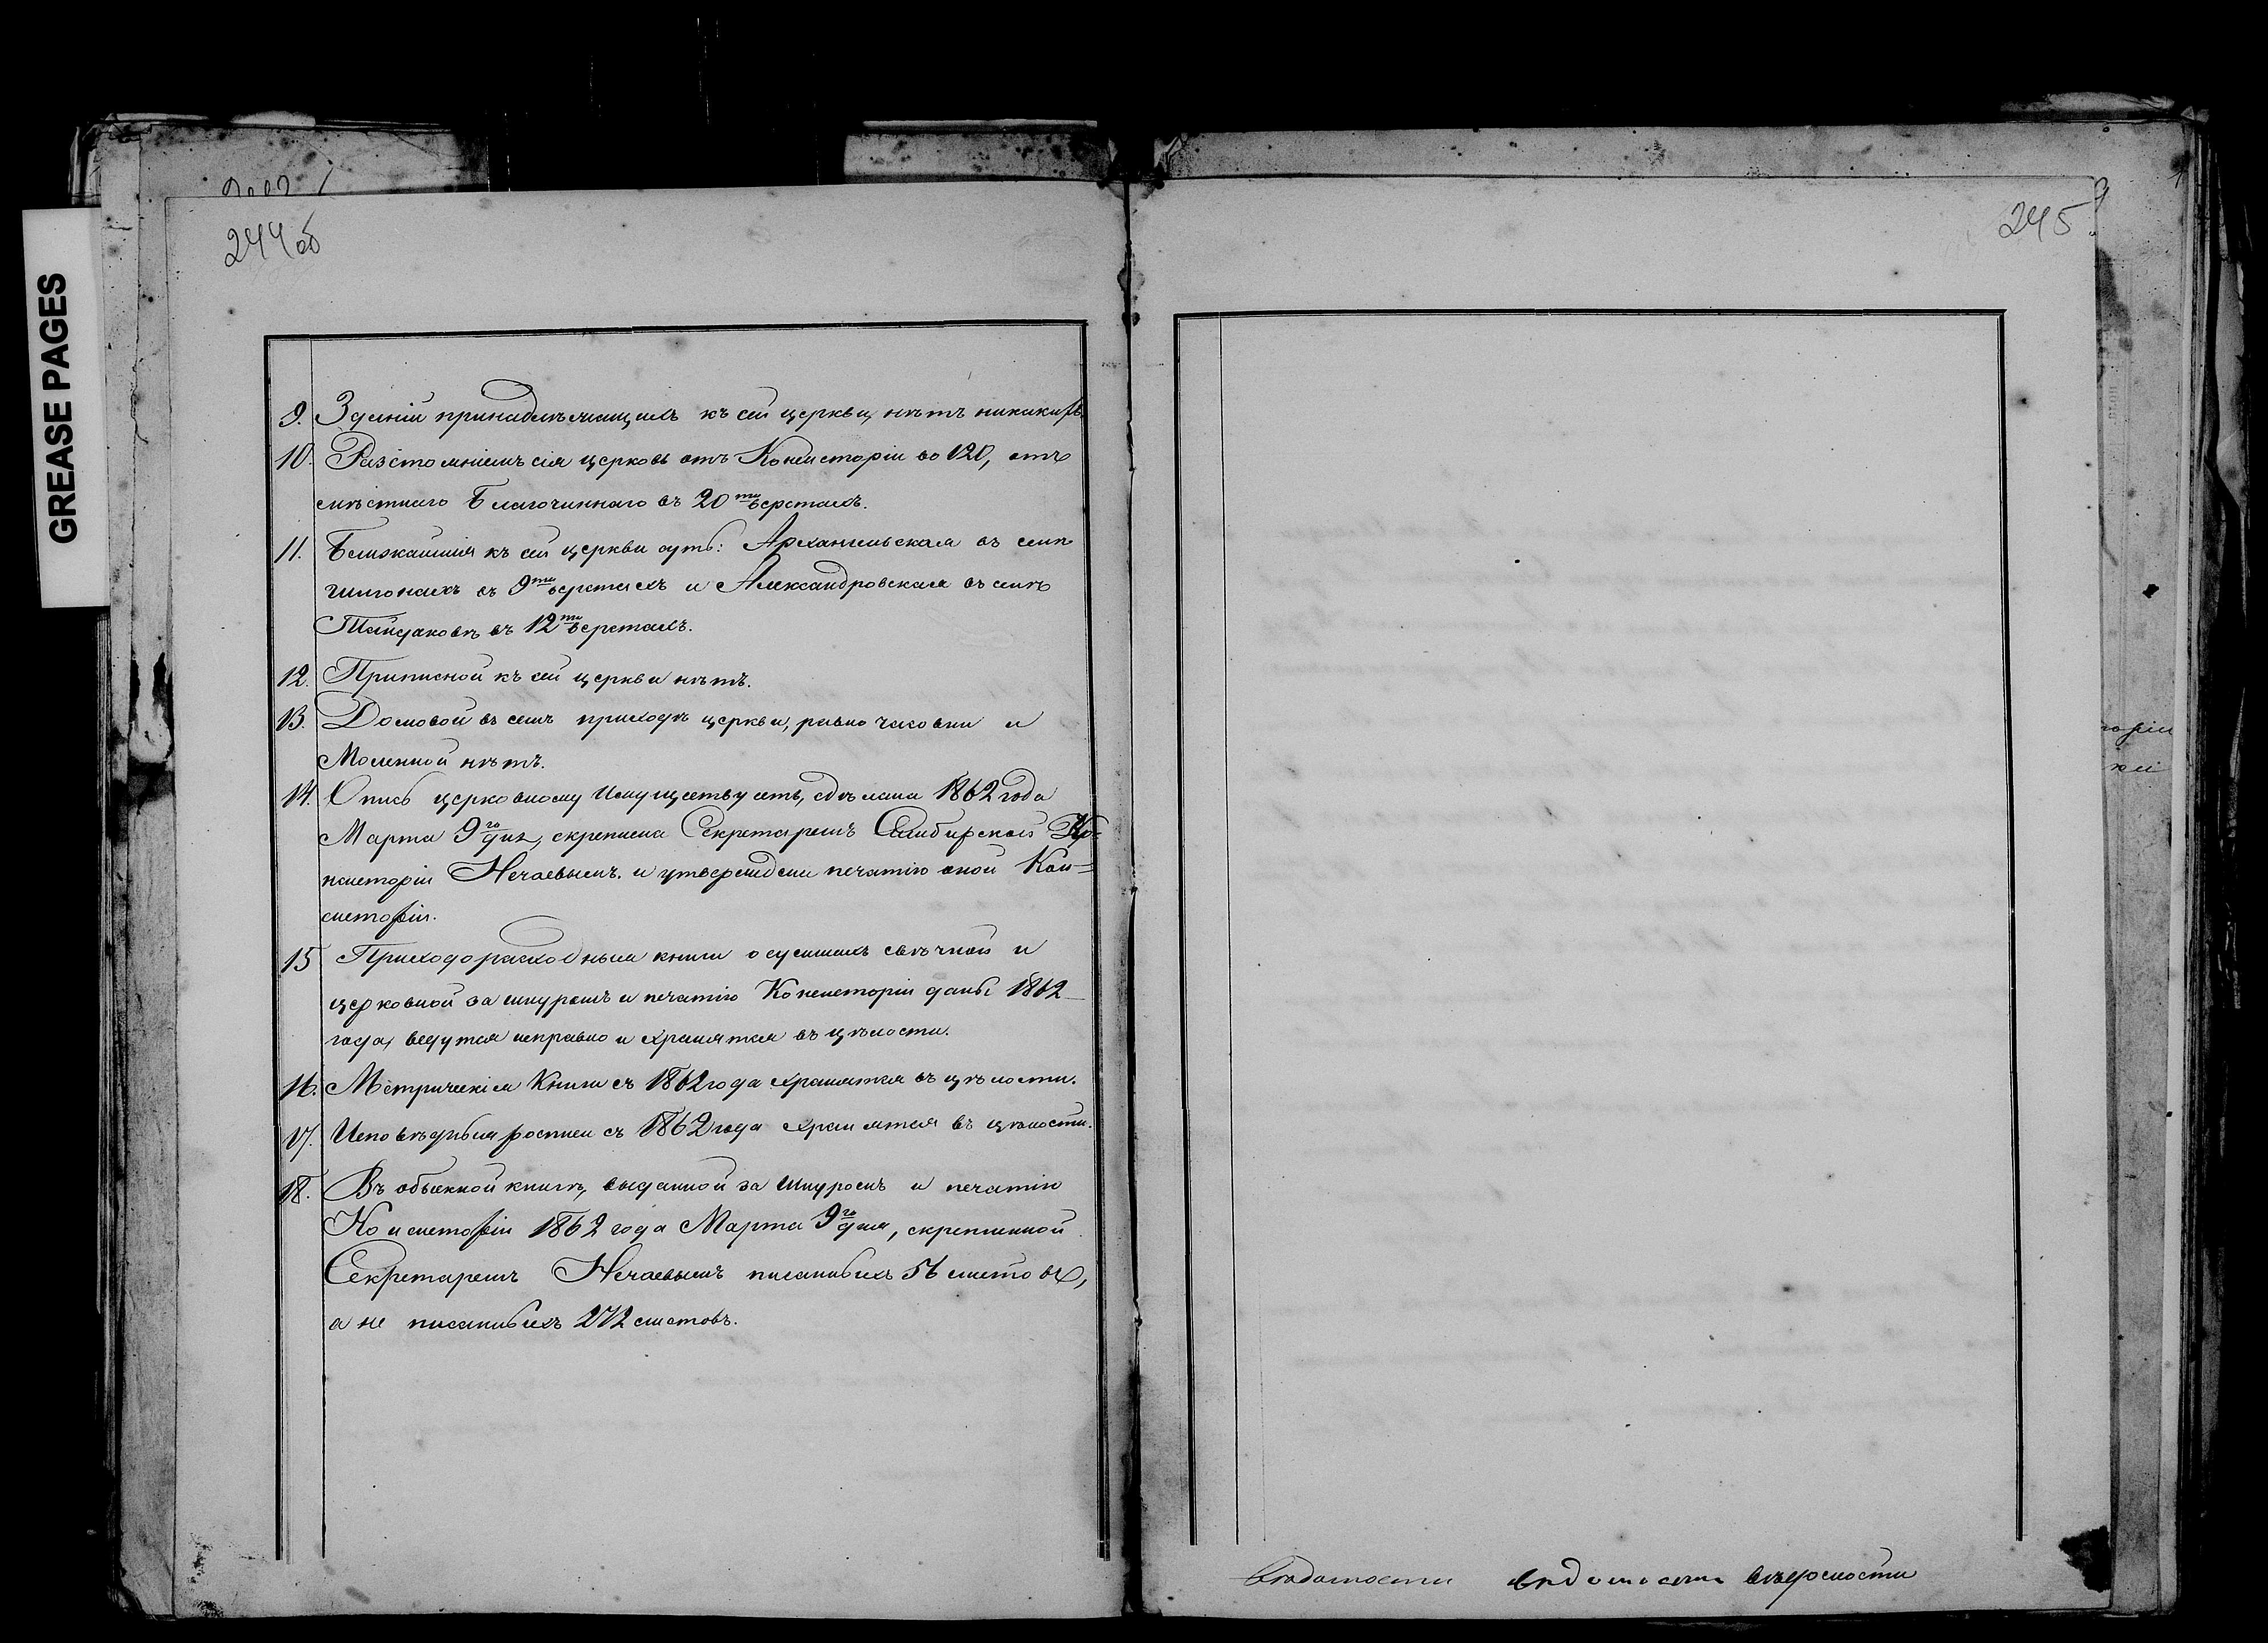 244об
245
GREASE PAGES
9. Зданій принадлежащихъ къ сей церкви, нѣтъ никакихъ.
10. Разстояніемъ сія церковь отъ Консисторіи во 120, отъ
мѣстнаго Благочиннаго въ 20ти верстахъ.
11. Ближайшія къ сей церкви суть: Архангельская въ селѣ
Шигонахъ въ 9ти верстахъ и Александровская въ селѣ
Тайдаковѣ въ 12ти верстахъ.
12. Приписной къ сей церкви нѣтъ.
13. Домовой въ семъ приходѣ церкви, равно часовни и
Моленной нѣтъ.
14. Опись церковному Имуществу есть, сдѣлана 1862 года
Марта 9го дня, скреплена Секретаремъ Симбирской Ко-
нсисторіи Нечаевымъ. и утверждена печатію оной Кон=
систоріи.
15 Приходорасходныя книги о суммахъ свѣчной и
церковной за шнуромъ и печатію Консисторіи даны 1862
года, ведутся исправно и хранятся въ цѣлости.
16. Метрическія Книги съ 1862 года хранятся въ цѣлости.
17. Исповѣдныя росписи съ 1862 года хранятся въ цѣлости.
18. Въ обыскной книгѣ, выданной за шнуромъ и печатію
Консисторіи 1862 года Марта 9го дня, скрепленной
Секретаремъ Нечаевымъ писанныхъ 56 листовъ,
а не писанныхъ 272 листовъ.
вѣдомости вѣдомости